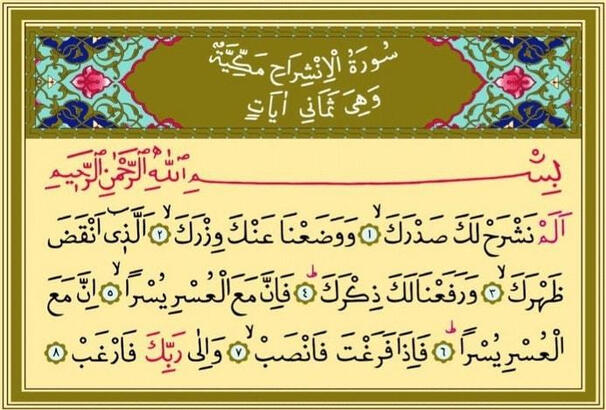 سُورَةُ الْاِنْشِرَاحِ مَكِّيَّةٌ
وَهِيَ ثَمَانِي اٰيَاتٍ
بِسْمِ اللّٰهِ الرَّحْمٰنِ الرَّحِيمِ
اَلَمْ نَشْرَحْ لَكَ صَدْرَكَۙ ﴿١﴾ وَوَضَعْنَا عَنْكَ وِزْرَكَۙ ﴿٢﴾ اَلَّذٓي اَنْقَضَ
ظَهْرَكَۙ ﴿٣﴾ وَرَفَعْنَا لَكَ ذِكْرَكَۜ ﴿٤﴾ فَاِنَّ مَعَ الْعُسْرِ يُسْرًاۙ ﴿٥﴾ اِنَّ مَعَ
الْعُسْرِ يُسْرًاۜ ﴿٦﴾ فَاِذَا فَرَغْتَ فَانْصَبْۙ ﴿٧﴾ وَاِلٰى رَبِّكَ فَارْغَبْ ﴿٨﴾